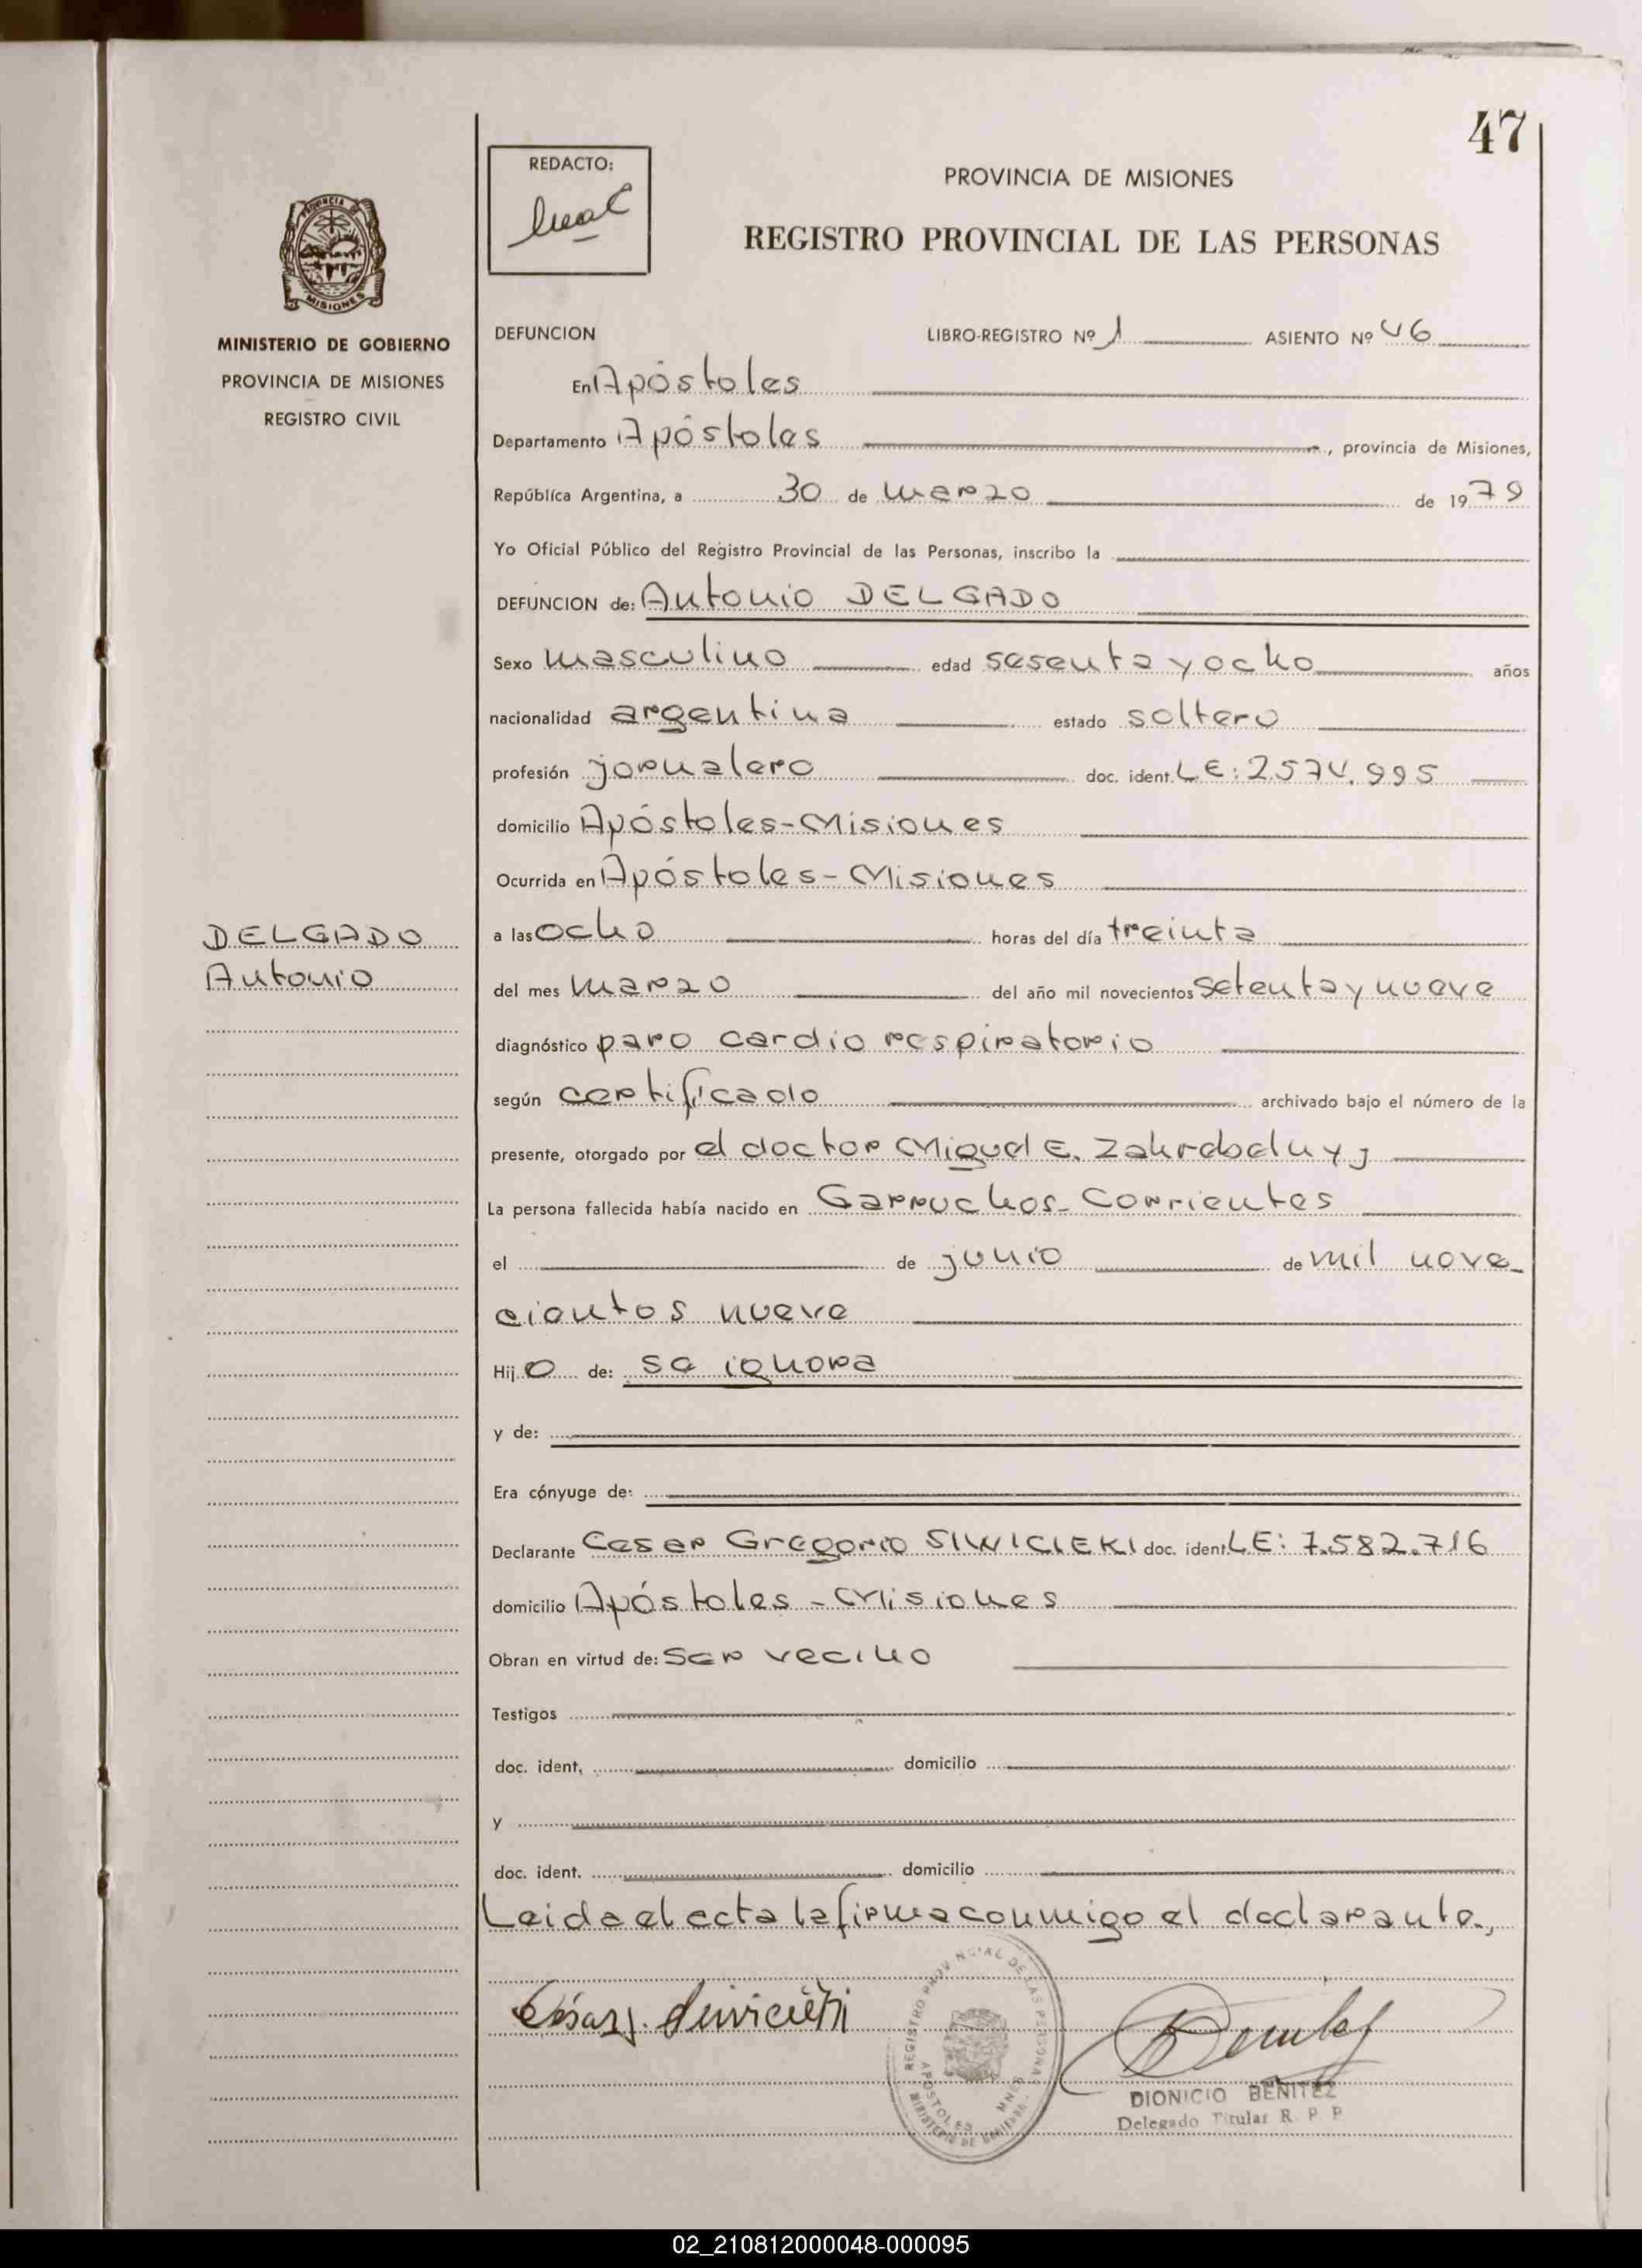 47
REDACTO:
PROVINCIA DE MISIONES
REGISTRO PROVINCIAL DE LAS PERSONAS
PROVINCIA DE
MISIONES
MINISTERIO DE GOBIERNO
PROVINCIA DE MISIONES
REGISTRO CIVIL
DEFUNCION LIBRO-REGISTRO Nº 1 ASIENTO Nº 46
En Apóstoles
Departamento Apóstoles, provincia de Misiones,
República Argentina, a 30 de marzo de 1979
Yo Oficial Público del Registro Provincial de las Personas, inscribo la
DEFUNCION de: Antonio DELGADO
Sexo masculino edad sesenta y ocho años
nacionalidad argentina estado soltero
profesión jornalero doc. ident. LE: 2.574.995
domicilio Apóstoles-Misiones
Ocurrida en Apóstoles-Misiones
DELGADO
Antonio
a las ocho horas del día treinta
del mes marzo del año mil novecientos setenta y nueve
diagnóstico paro cardio respiratorio
según certificado archivado bajo el número de la
presente, otorgado por el doctor Miguel E.
La persona fallecida había nacido en Garruchos-Corrientes
el de junio de mil nove-
cientos nueve
Hijo de: se ignora
y de:
Era cónyuge de:
Declarante Cesar Gregorio SIWICIEKI doc. ident. LE: 7.582.716
domicilio Apóstoles-Misiones
Obran en virtud de: ser vecino
Testigos
doc. ident. domicilio
y
doc. ident. domicilio
Leida el acta la firma conmigo el declarante,
REGISTRO PROVINCIAL DE LAS PERSONAS
APOSTOLES MNES
MINISTERIO DE GOBIERNO
DIONICIO BENITEZ
Delegado Titular R. P. P.
02_210812000048-000095